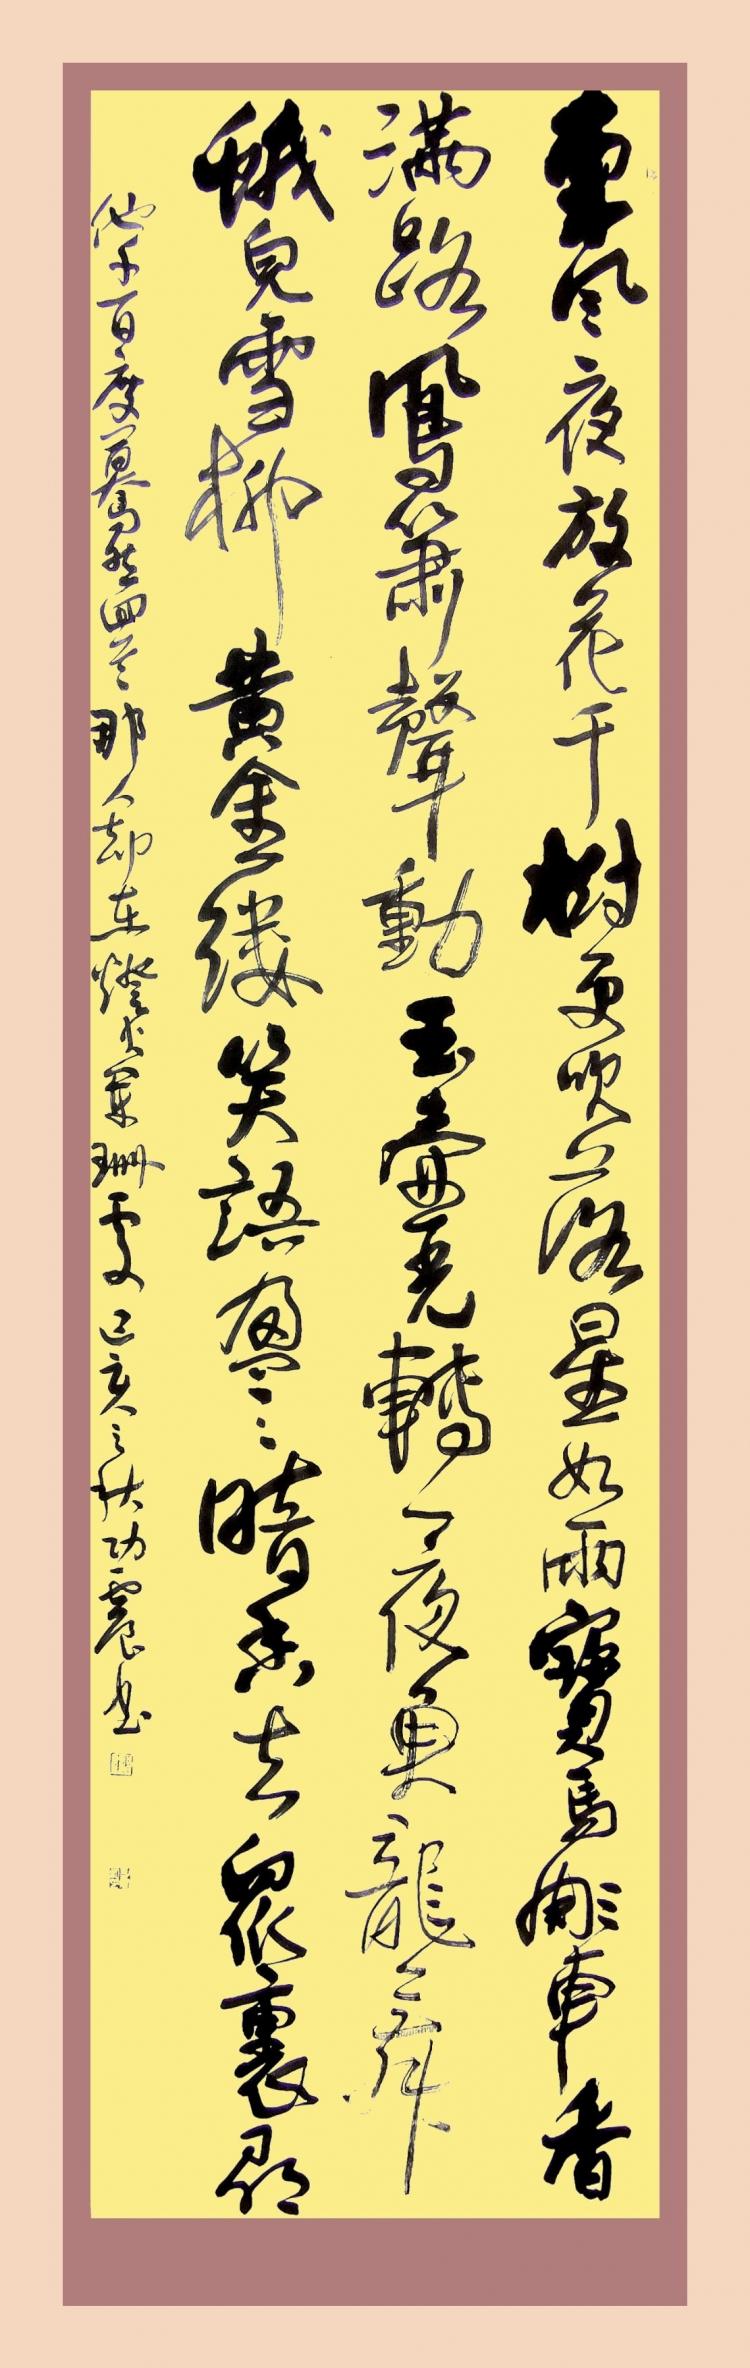 東風夜放花千樹更吹落星如雨寶馬雕車香
滿路鳳簫聲動玉壺光轉一夜魚龍舞
蛾兒雪柳黄金縷笑語盈〻暗香去眾裏尋
他千百度驀然回首那人却在燈火闌珊處己亥之秋功震书